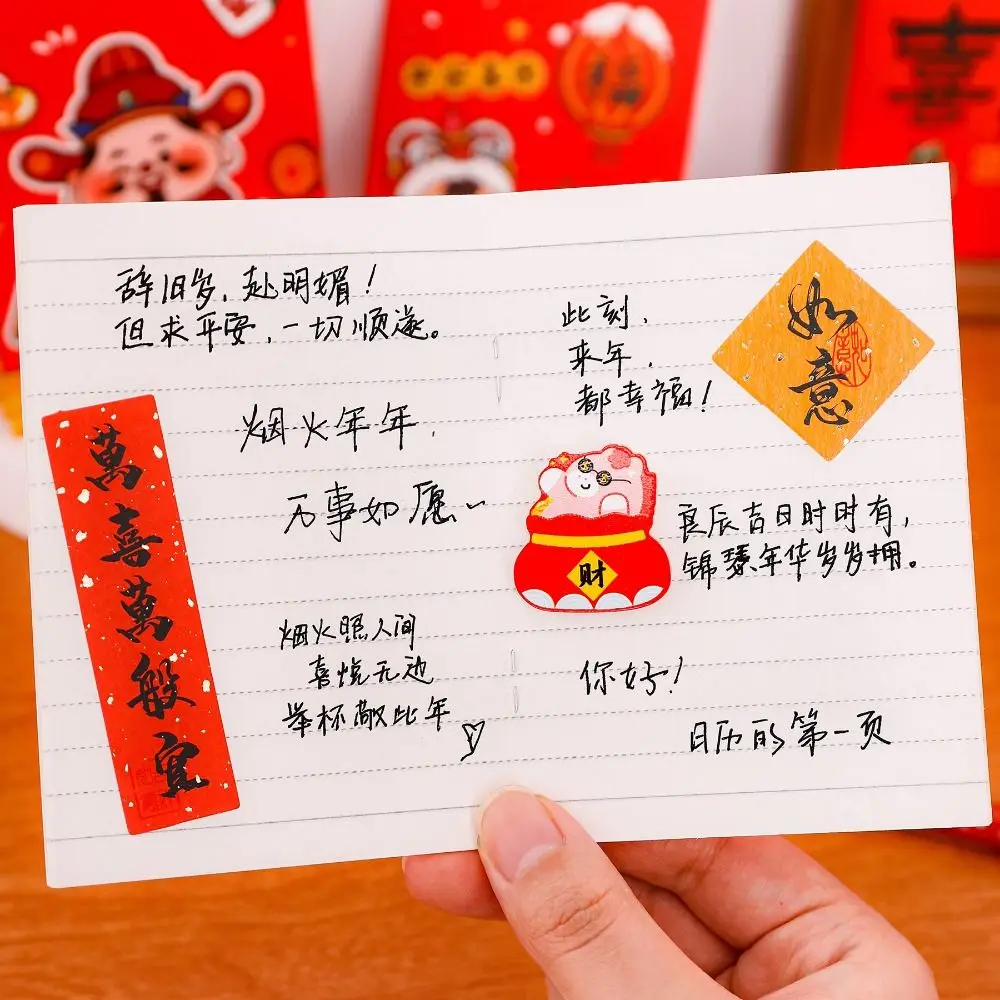 辞旧岁，赴明媚！
但求平安，一切顺遂。
烟火年年，
万事如愿~
烟火照人间
喜悦无边
举杯敬此年
萬喜萬般宜
此刻，
来年，
都幸福！
如意
财
良辰吉日时时有，
锦瑟年华岁岁拥。
你好！
日历的第一页
福
喜